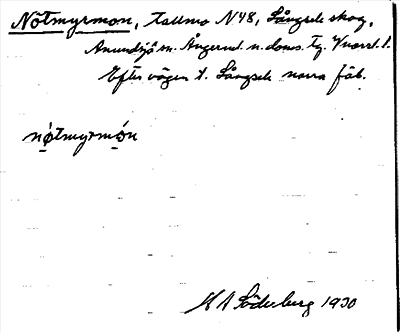 Nötmyrmon, tallmo N48, Långsele skog,
Anundsjö sn. Ångerml. n. doms. Tg.
Efter vägen t. Långsele norra fäb.
nötmyrmón
H A Söderberg 1930